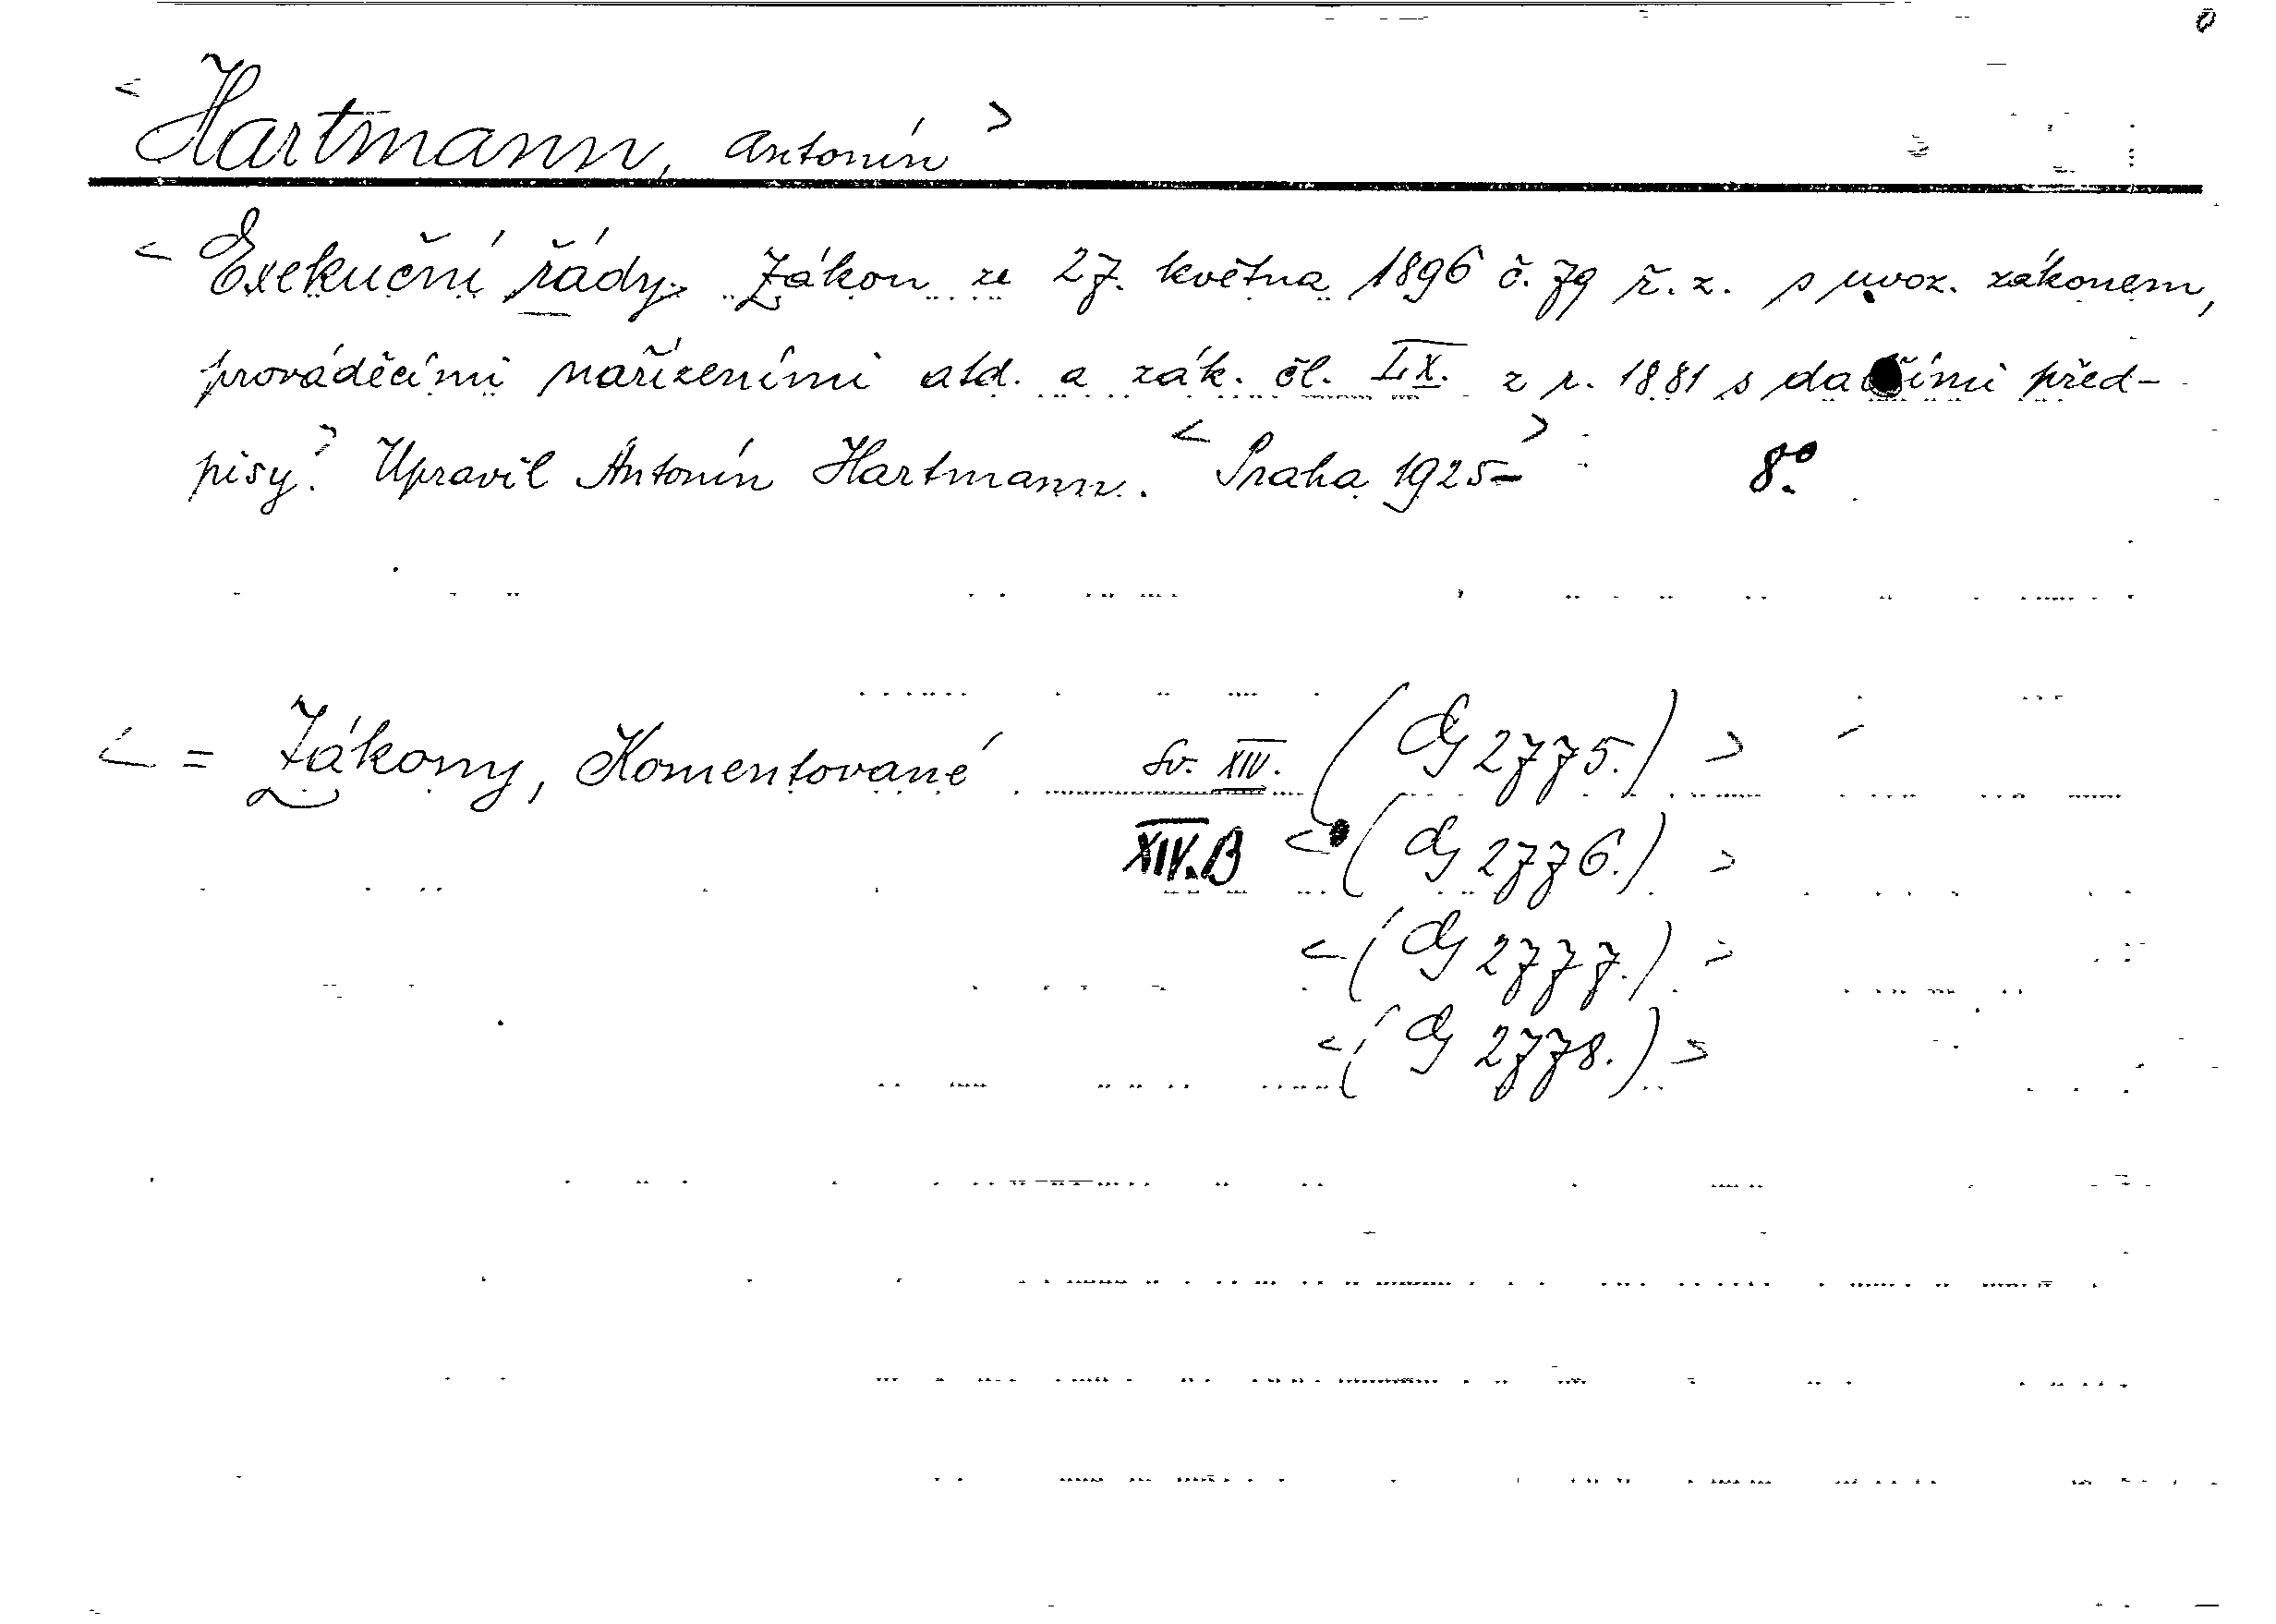 < Hartmann, Antonín >
< Exekuční řády. Zákon ze 27. května 1896 č. 79 ř. z. s uvoz. zákonem,
prováděcími nařízeními atd. a zák. čl. LX. z r. 1881 s dalšími před-
pisy. > Upravil Antonín Hartmann. < Praha 1925- > 8°.
< = Zákony, Komentované Sv. XIV. (Dg 2775.) >
XIV.B < (Dg 2776.) >
< (Dg 2777.) >
< (Dg 2778.) >